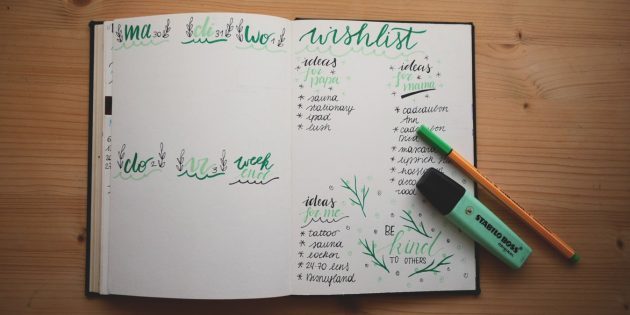 ma 30
di 31
wo 1
do 2
vr 3
week
end
wishlist
ideas
for
papa
* sauna
* stationary
* ipad
* lush
ideas
for
mama
* cadeaubon
Ann
* mascara
* lipstick
* deco
ideas
for me
* tattoo
* sauna
* boeken
* 24 70 lens
* Disneyland
BE
kind
TO OTHERS
STABILO BOSS